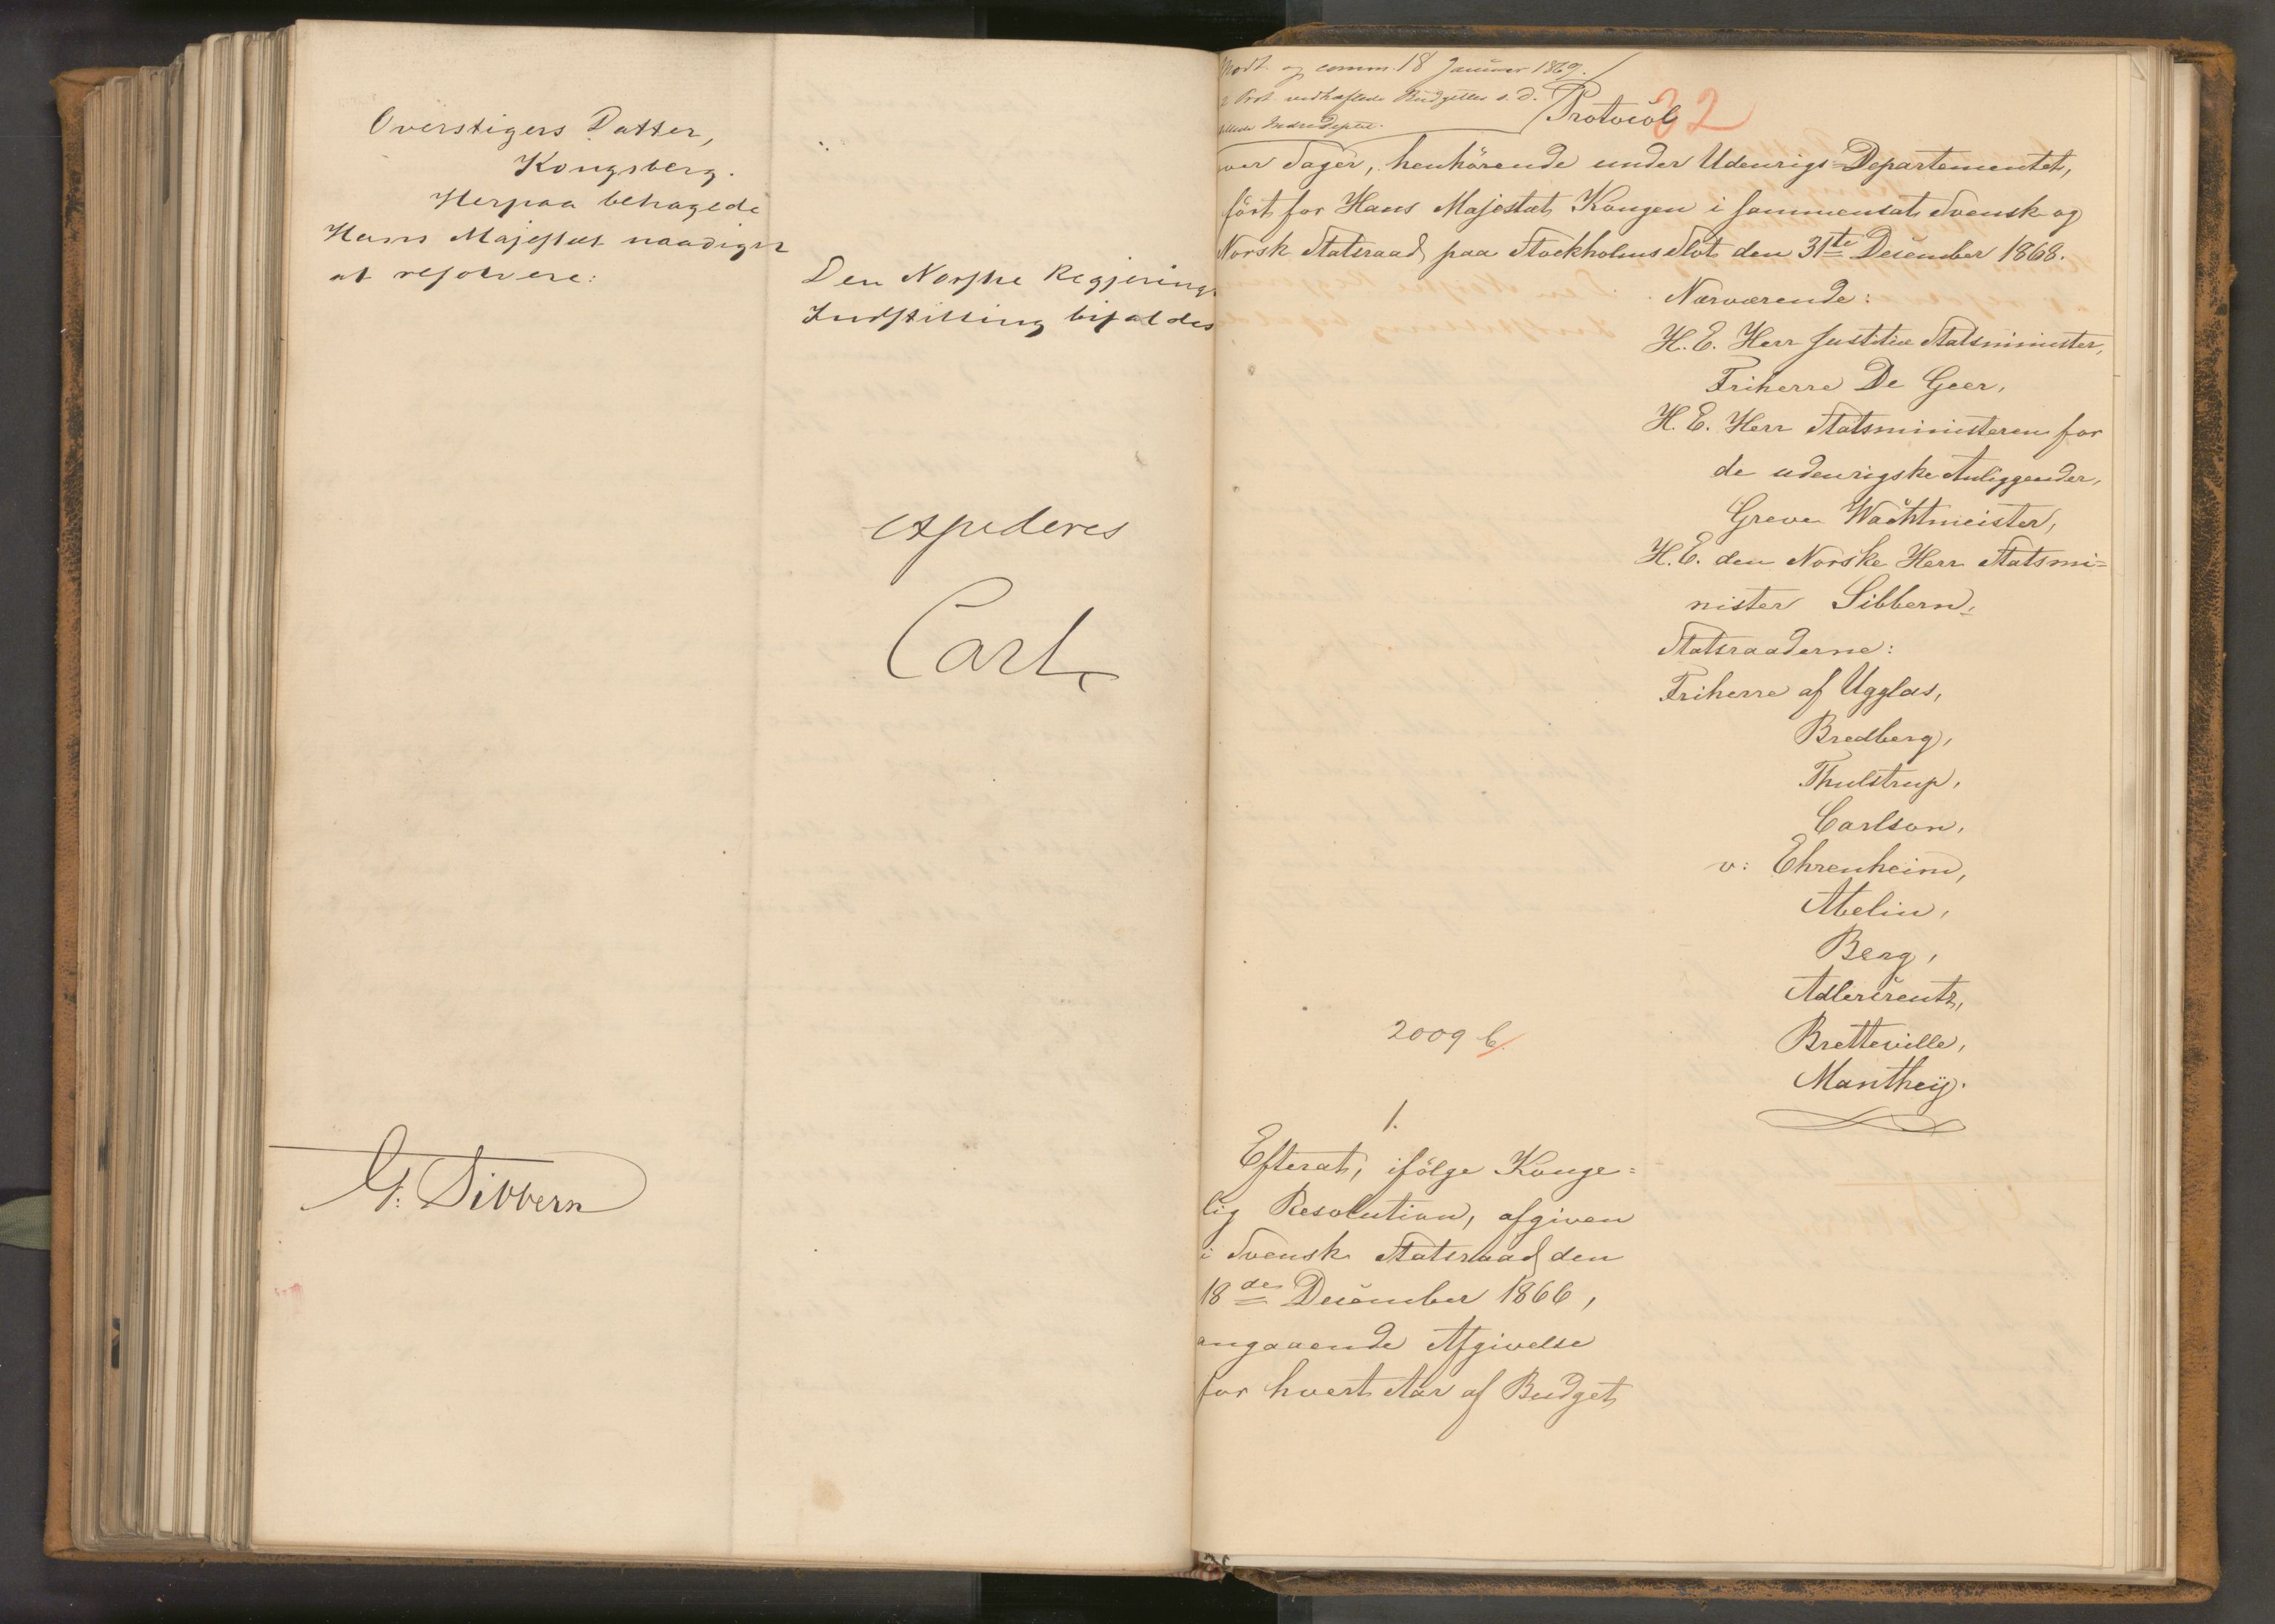 Overstigers Datter,
Kongsberg.
Herpaa behagede
Hans Majestæt naadigst
at resolvere:
Den Norske Regjerings
Indstilling bifaldes
expederes
Carl
G. Sibbern
Modt. og comm. 18 Januar 1869.
Prot vedhæftede Budgetter s. D.
Indredeptet.
Protocol
32
over Sager, henhörende under Udenrigs-Departementet,
fört for Hans Majestæt Kongen i sammensat Svensk og
Norsk Statsraad paa Stockholms Slot den 31te December 1868.
Nærværende:
H. E. Herr Justitiæ Statsminister,
Friherre De Geer,
H. E. Herr Statsministeren for
de udenrigske Anliggender,
Greve Wachtmeister,
H. E. den Norske Herr Statsmi=
nister Sibbern,
Statsraaderne:
Friherre af Ugglas,
Bredberg,
Thulstrup,
Carlson,
v: Ehrenheim,
Abelin,
Berg,
Adlercreutz,
Bretteville,
Manthey.
2009 b/.
1.
Efterat, ifölge Konge=
lig Resolution, afgiven
i Svensk Statsraad den
18de December 1866,
angaaende Afgivelse
for hvert Aar af Budget